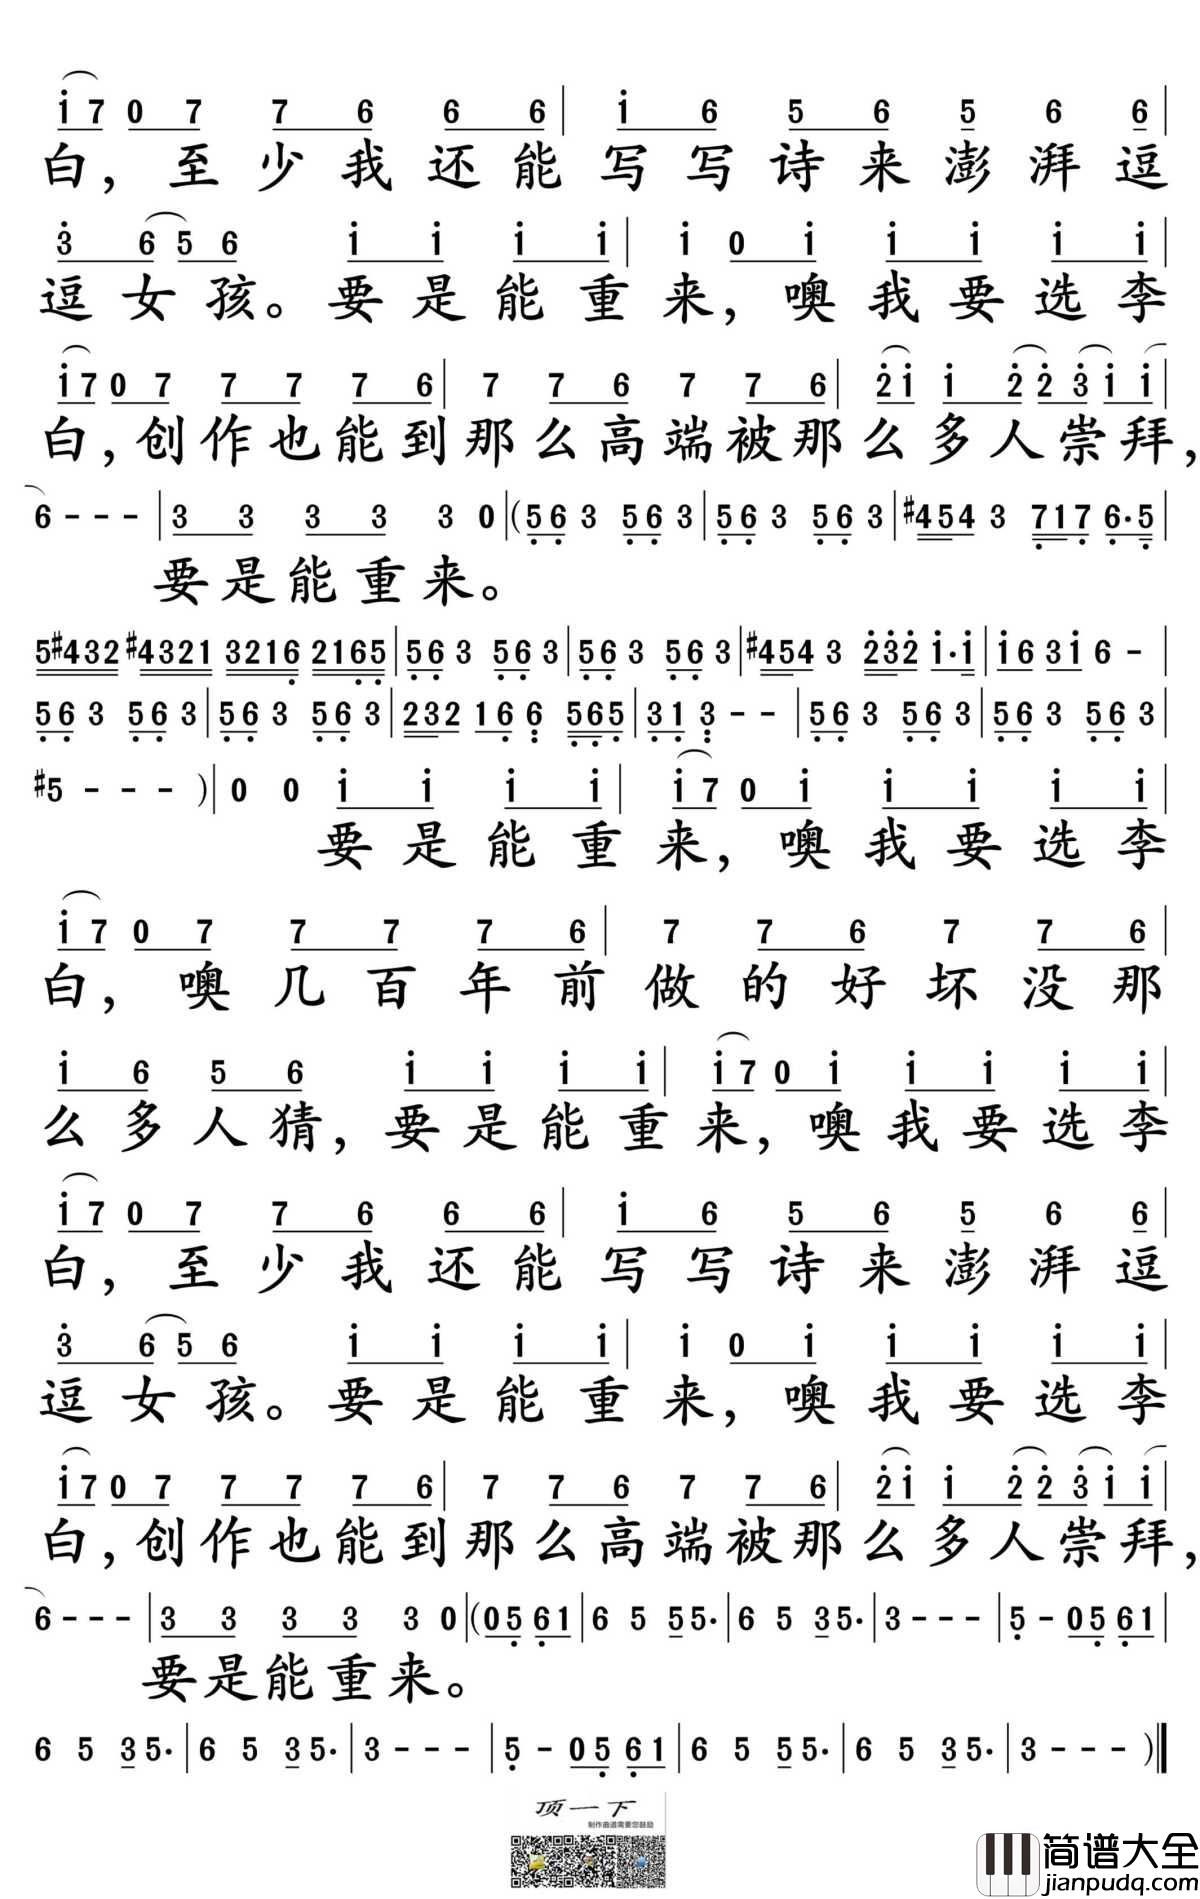 i7 0 7 7 6 6 6 | i 6 5 6 5 6 6 |
白，至少我还能写写诗来澎湃逗
3 6 5 6 i i i i | i 0 i i i i i |
逗女孩。要是能重来，噢我要选李
i7 0 7 7 7 7 6 | 7 7 6 7 7 6 | 2 i i 2 2 3 i i |
白，创作也能到那么高端被那么多人崇拜，
6 - - - | 3 3 3 3 3 0 | (5 6 3 5 6 3 | 5 6 3 5 6 3 | #454 3 717 6·5 |
要是能重来。
5#432 #4321 3216 2165 | 56 3 56 3 | 56 3 56 3 | #454 3 232 i·i | i6 3i 6 - |
56 3 56 3 | 56 3 56 3 | 232 16 6 565 | 31 3 - - | 56 3 56 3 | 56 3 56 3
#5 - - - ) | 0 0 i i i i | i7 0 i i i i i |
要是能重来，噢我要选李
i7 0 7 7 7 7 6 | 7 7 6 7 7 6 |
白，噢几百年前做的好坏没那
i 6 5 6 i i i i | i7 0 i i i i i |
么多人猜，要是能重来，噢我要选李
i7 0 7 7 6 6 6 | i 6 5 6 5 6 6 |
白，至少我还能写写诗来澎湃逗
3 6 5 6 i i i i | i 0 i i i i i |
逗女孩。要是能重来，噢我要选李
i7 0 7 7 7 7 6 | 7 7 6 7 7 6 | 2 i i 2 2 3 i i |
白，创作也能到那么高端被那么多人崇拜，
6 - - - | 3 3 3 3 3 0 | (05 61 | 6 5 55· | 6 5 35· | 3 - - - | 5 - 05 61 |
要是能重来。
6 5 35· | 6 5 35· | 3 - - - | 5 - 05 61 | 6 5 55· | 6 5 35· | 3 - - - )‖
顶一下
制作曲谱需要您鼓励
简谱大全
jianpudq.com